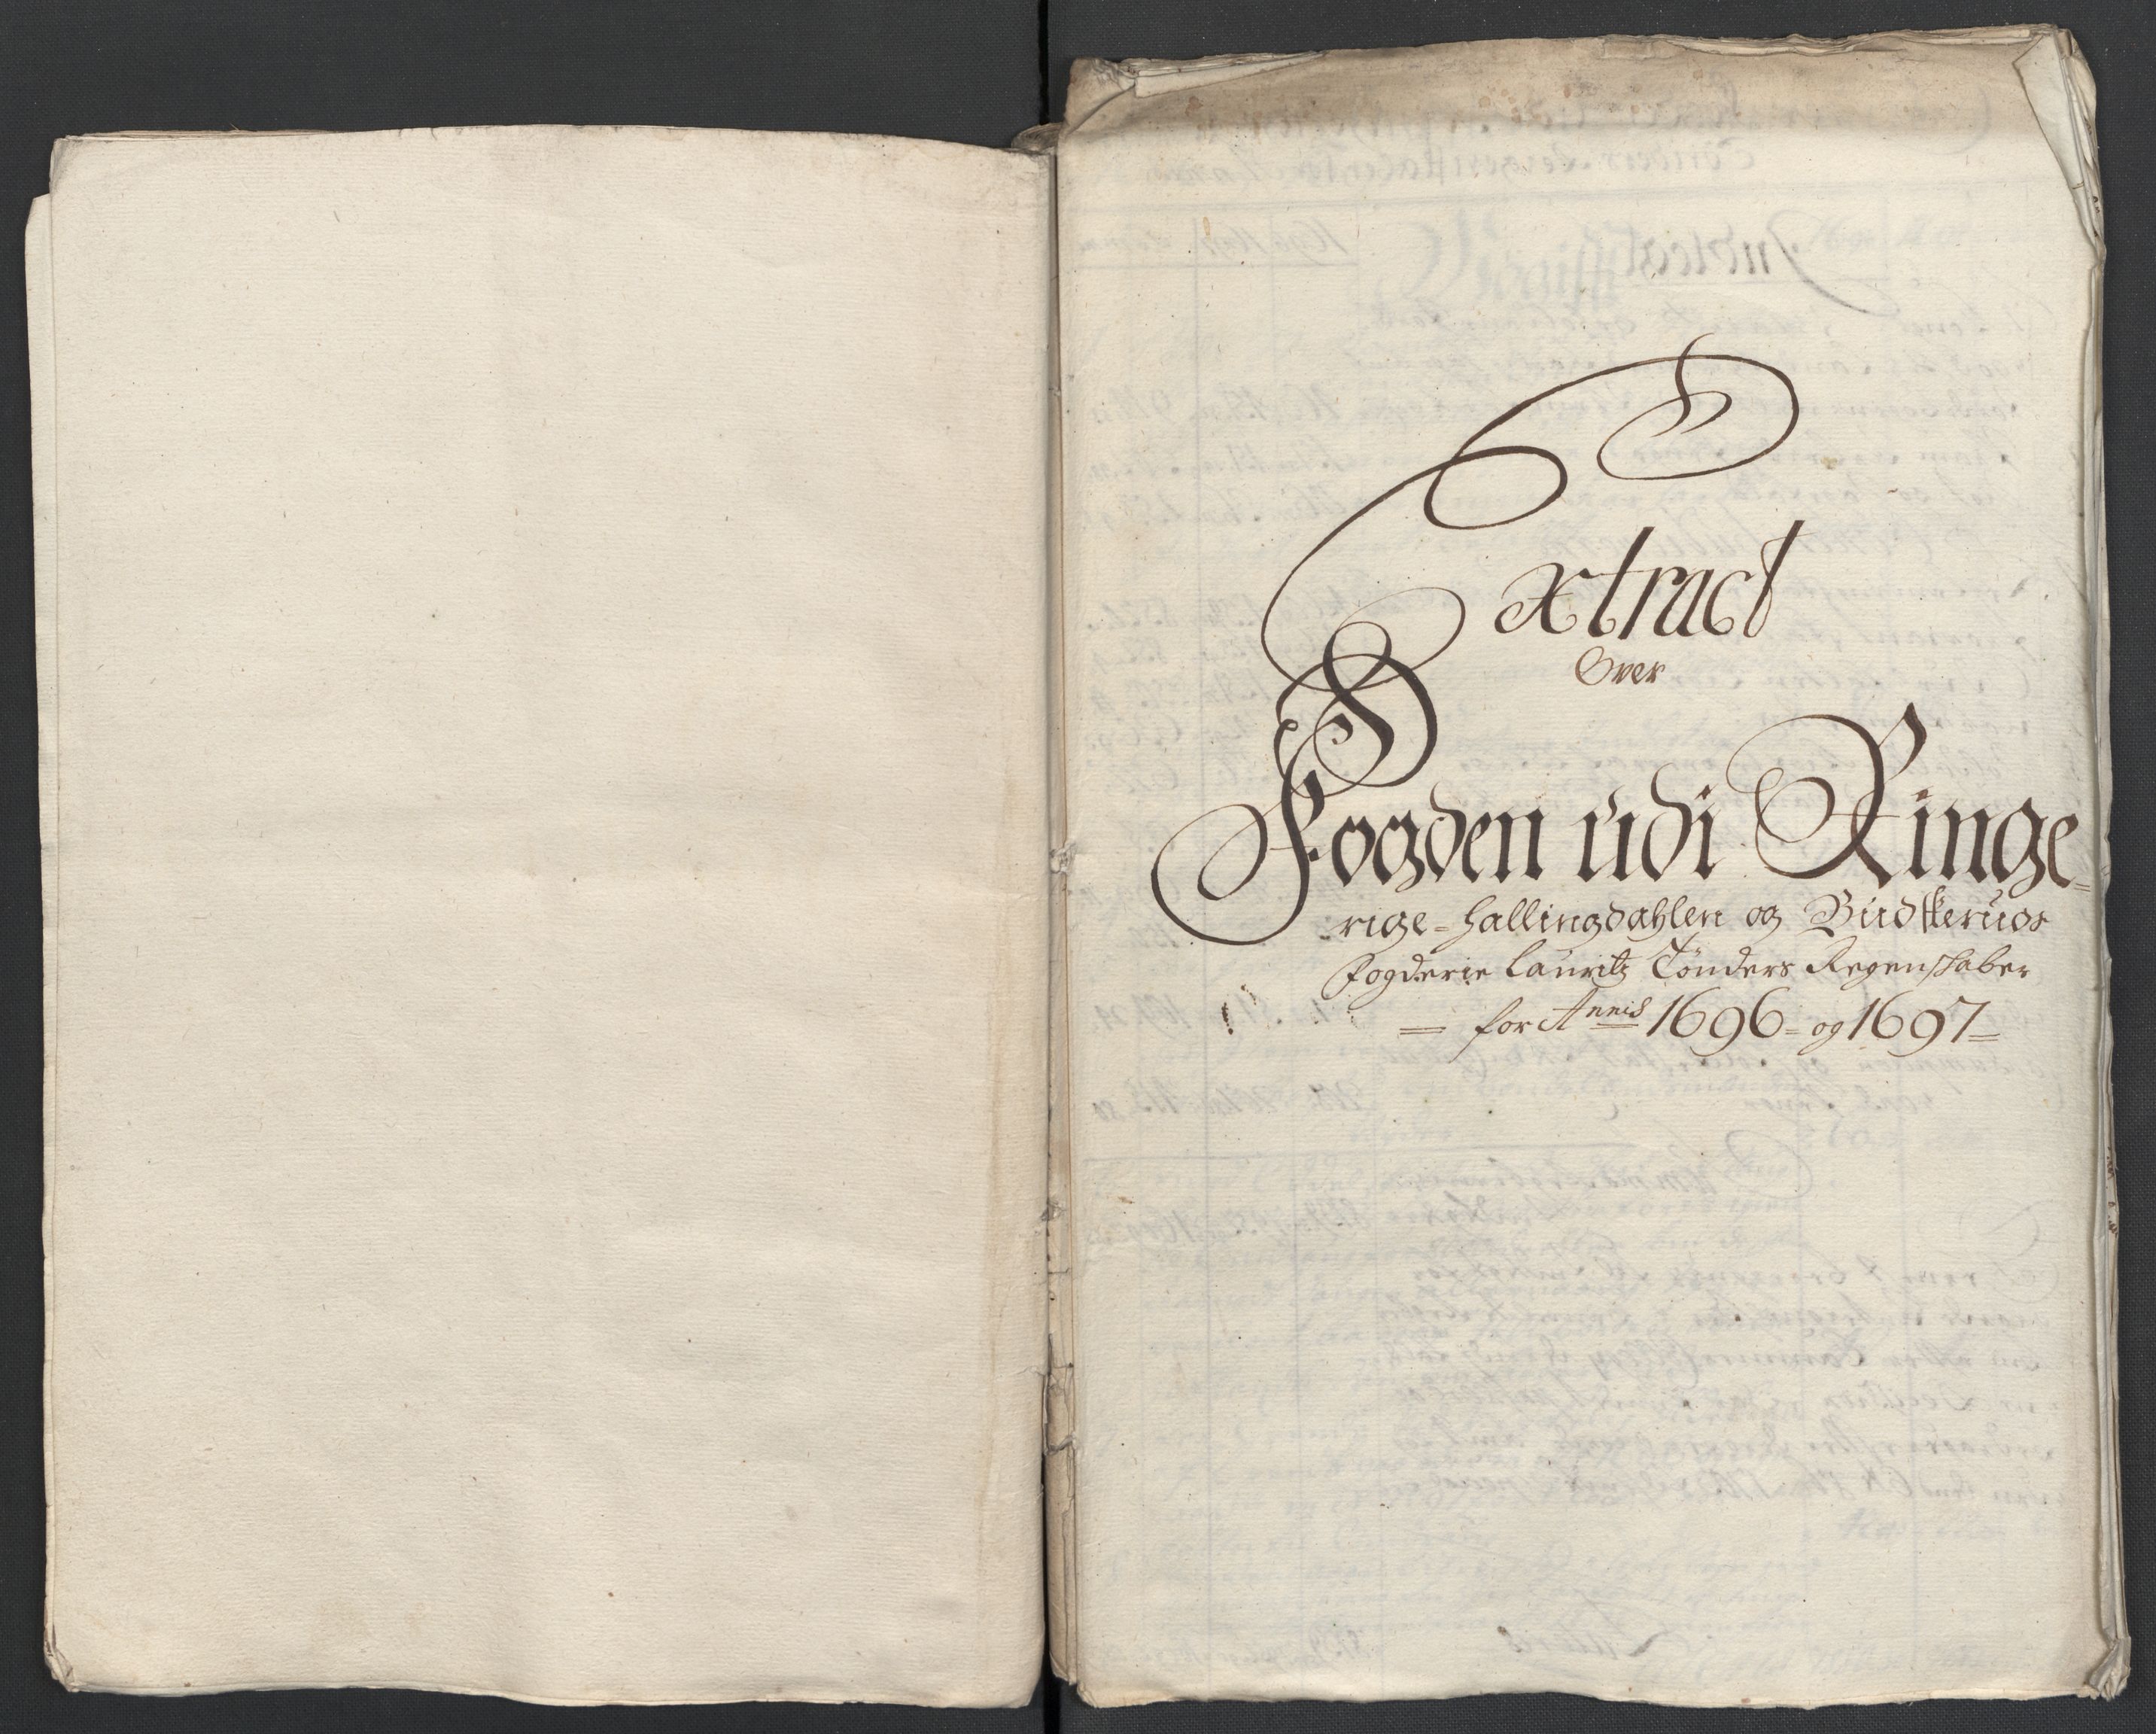 Extract
Over
Fogden udi Ringe=
rige=Hallingdahlen og Budskeruds
Fogderie Lauritz Tønders Regenskaber
= for Annis 1696= og 1697=